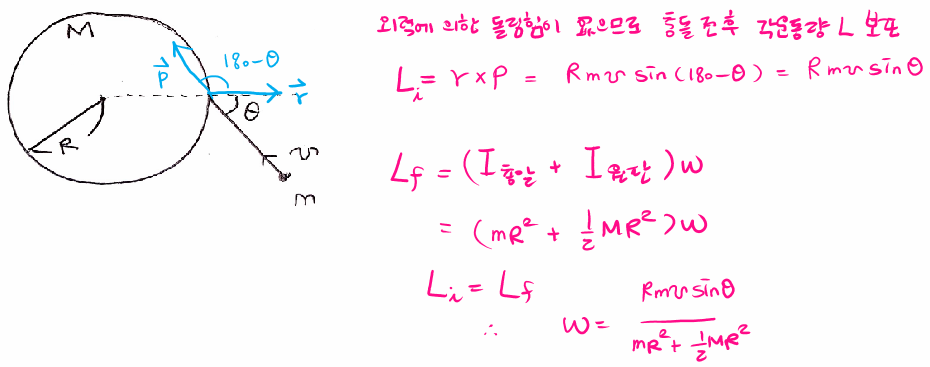 M
P⃗
180-θ
r⃗
θ
R
v
m
외력에 의한 돌림힘이 없으므로 충돌 전후 각운동량 L 보존
Lᵢ = r × P = Rmv sin(180-θ) = Rmv sinθ
L_f = (I_총알 + I_원판)w
= (mR² + ½MR²)w
Lᵢ = L_f
∴ w = Rmv sinθ / (mR² + ½MR²)